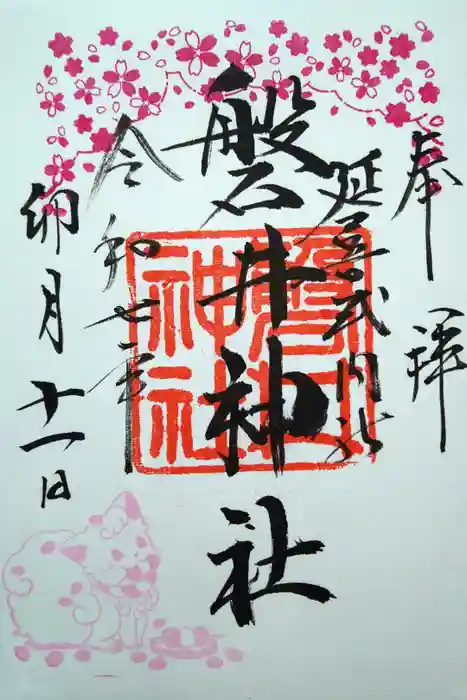 奉拝
延喜式内社
磐井神社
令和七年
卯月十一日
磐井
神社